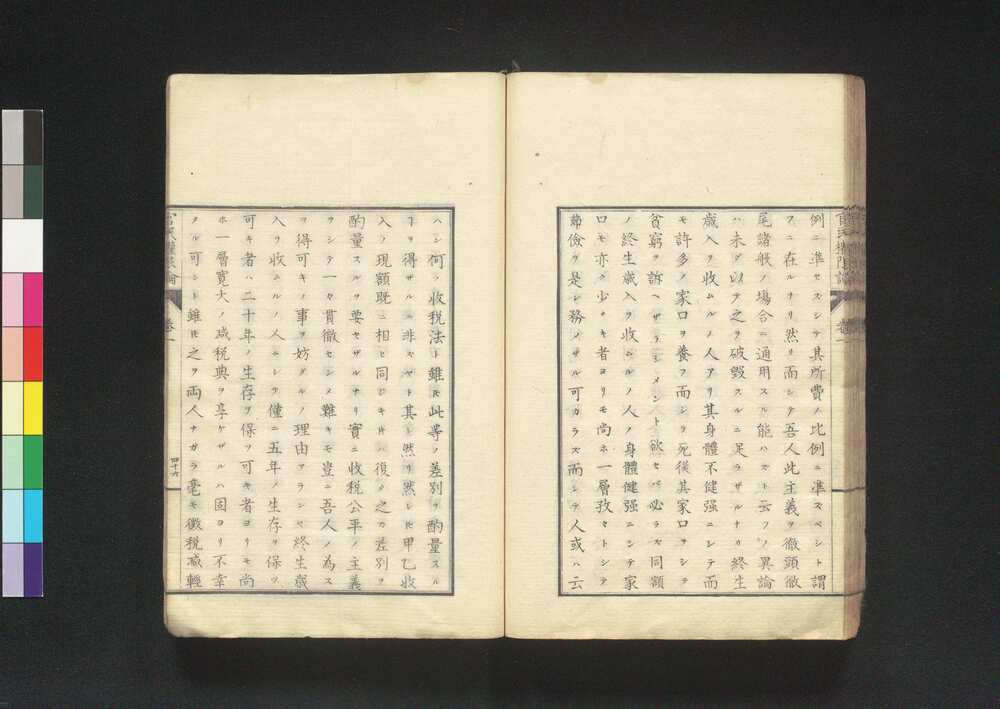 例ニ準セスシテ其所費ノ比例ニ準スベシト謂
フニ在ルナリ然リ而シテ吾人此主義ヲ徹頭徹
尾諸般ノ場合ニ通用スル能ハズト云フノ異論
ハ未ダ以テ之ヲ破毀スルニ足ラザルナカ終生
歳入ヲ收ムルノ人アリ其身體不健强ニシテ而
モ許多ノ家口ヲ養フ而シテ死後其家口ヲシテ
貧窮ヲ訴ヘザラシメント欲セバ必ラズ同額
ノ終生歳入ヲ收ムルノ人ノ身體健强ニシテ家
口モ亦タ少ナキ者ヨリモ尚ホ一層孜々トシテ
節儉ヲ是レ務メザル可カラズ而シテ人或ハ云
ハン何ノ收税法ト雖𪜈此等ノ差別ヲ酌量スル
ヿヲ得ザルニ非ズヤト其レ然リ然レ𪜈甲乙收
入ノ現額既ニ相ヒ同ジキ𪜈ハ復タ之カ差別ヲ
酌量スルヲ要セザルナリ實ニ收税公平ノ主義
ヲシテ一々貫徹セシメ難キモ豈ニ吾人ノ為ス
ヲ得可キノ事ヲ妨グルノ理由アランヤ終生歳
入ヲ收ムルノ人ニシテ僅ニ五年ノ生存ヲ保ツ
可キ者ハ二十年ノ生存ヲ保ツ可キ者ヨリモ尚
ホ一層寛大ノ減税典ヲ享ケザルハ固ヨリ不幸
タル可シト雖𪜈之ヲ両人ナガラ毫モ徴税減輕
官民權限論
卷一
四十六